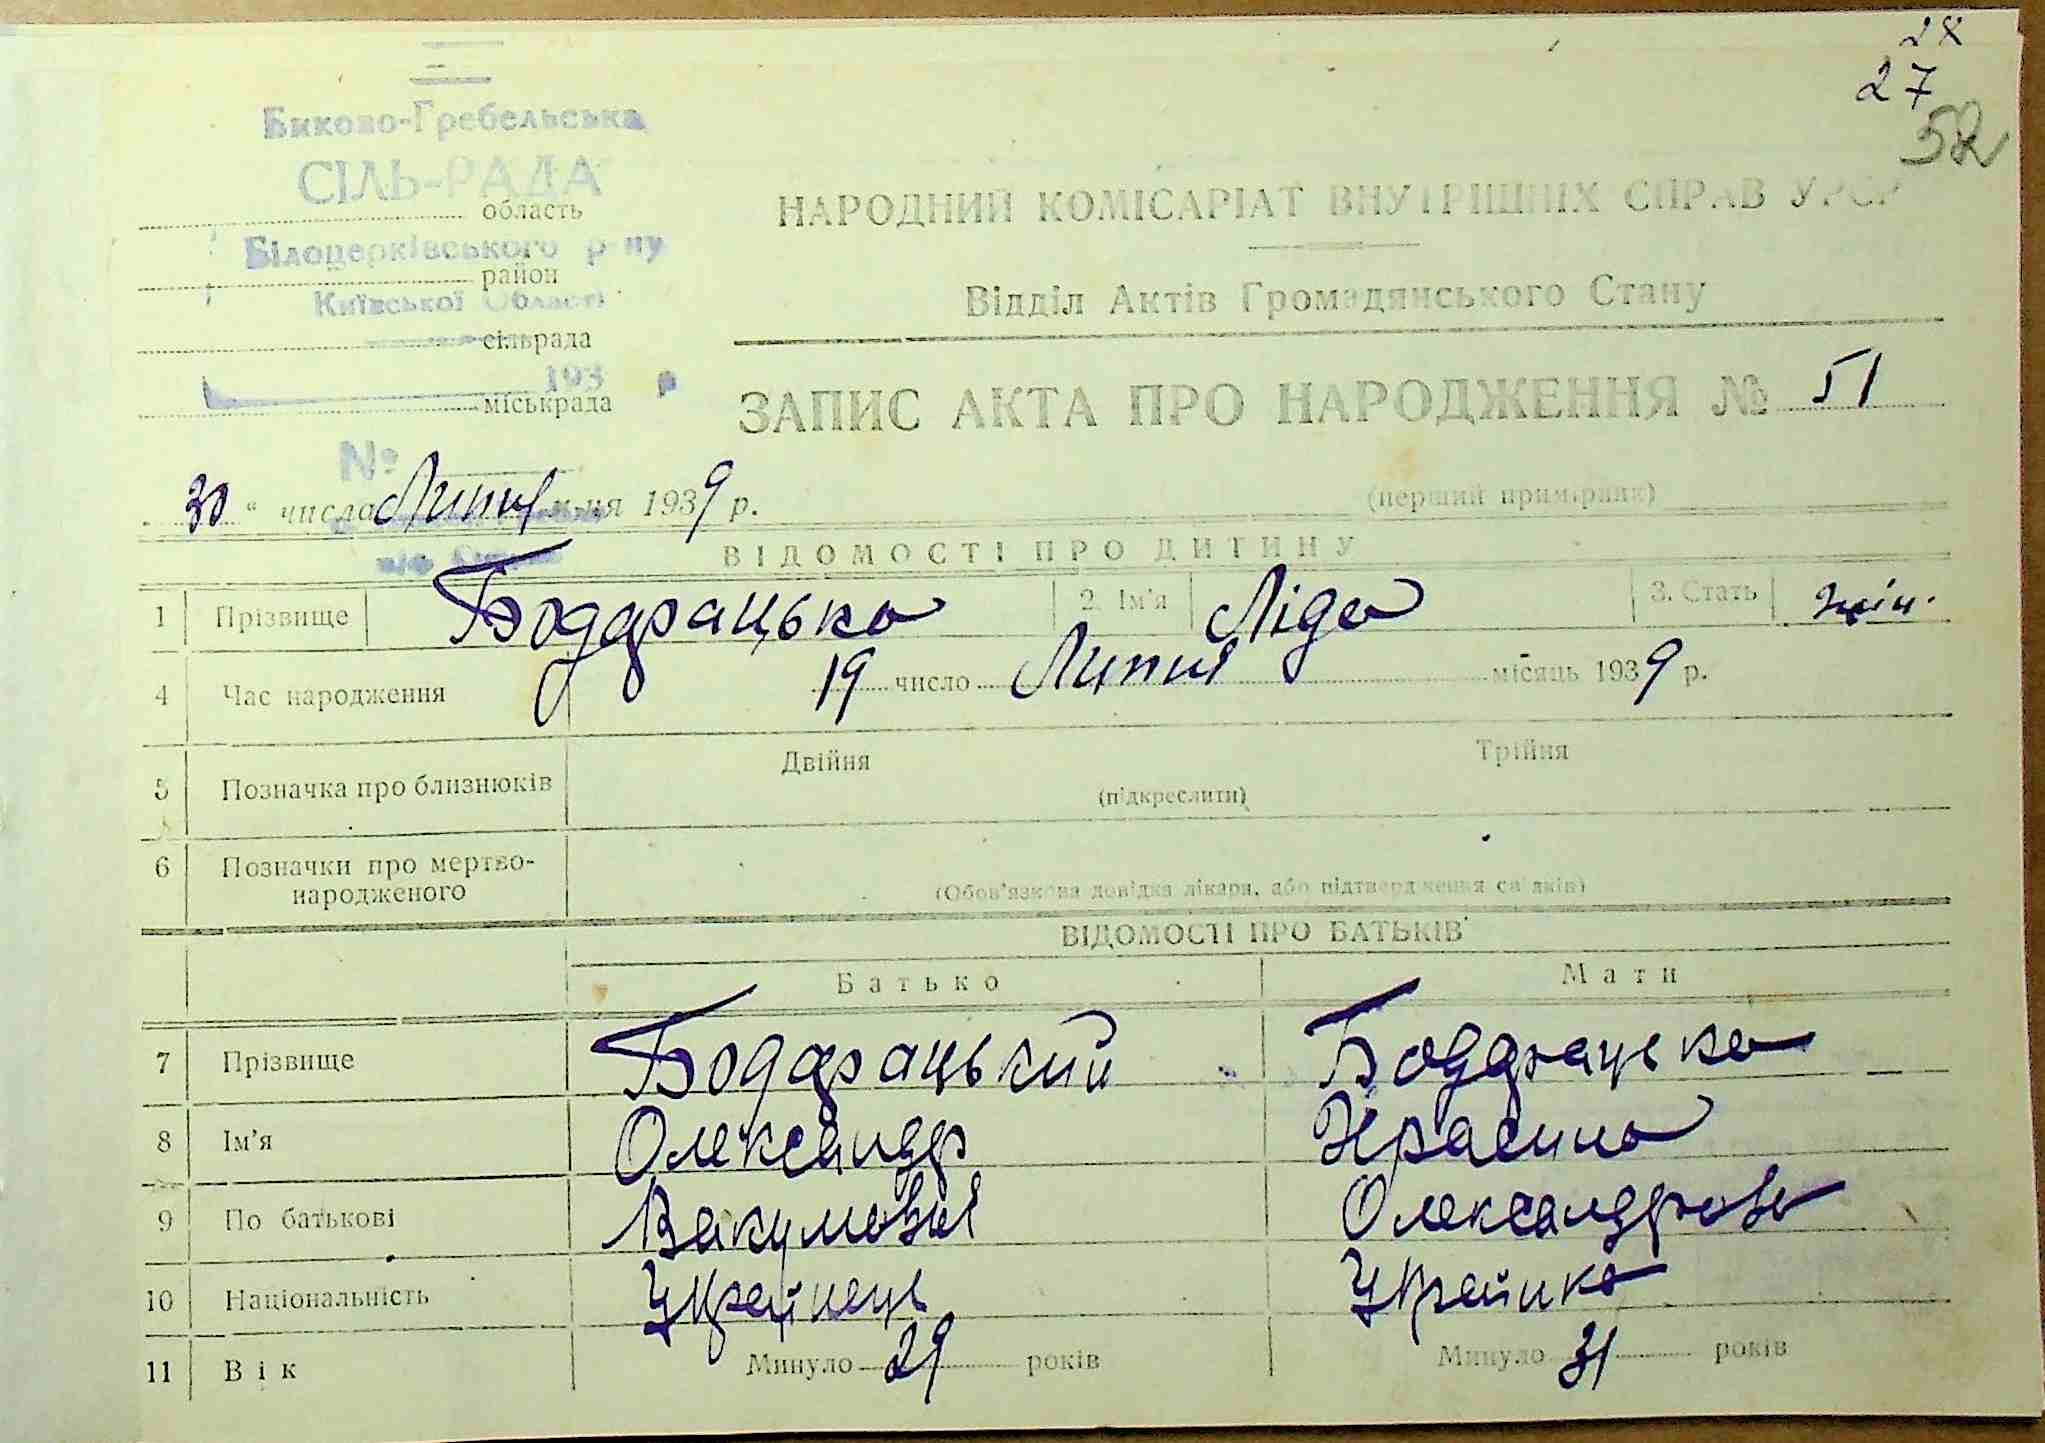 28
27
52
Биково-Гребельська
СІЛЬ-РАДА
область
Білоцерківського р-ну
район
Київської Області
сільрада
193 р
міськрада
№
НАРОДНИЙ КОМІСАРІАТ ВНУТРІШНІХ СПРАВ УРСР
Відділ Актів Громадянського Стану
ЗАПИС АКТА ПРО НАРОДЖЕННЯ № 51
(перший примірник)
30 " числа Липня м-ця 1939 р.
ВІДОМОСТІ ПРО ДИТИНУ
1 Прізвище Бодрацька 2. Ім'я Ліда 3. Стать жін.
4 Час народження 19 число Липня місяць 1939 р.
5 Позначка про близнюків Двійня Трійня
(підкреслити)
6 Позначки про мертво-
народженого
(Обов'язкова довідка лікаря, або підтвердження свідків)
ВІДОМОСТІ ПРО БАТЬКІВ
Батько Мати
7 Прізвище Бодрацький Бодрацька
8 Ім'я Олександр
9 По батькові Вакумович Олександровн
10 Національність Украйнець Украйнка
11 Вік Минуло 29 років Минуло 31 років